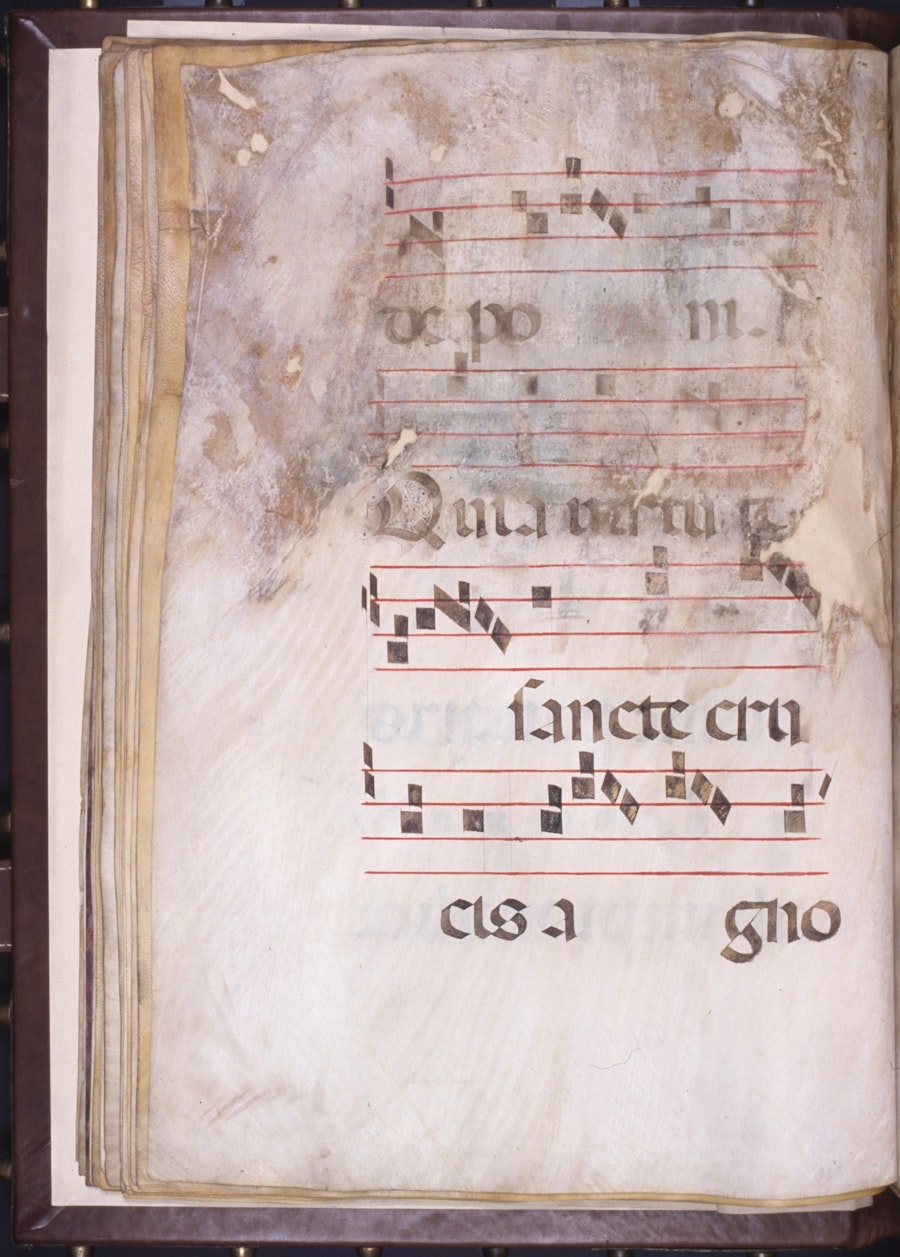 de po ni.
Quia virtu
sancte cru
cis a gno